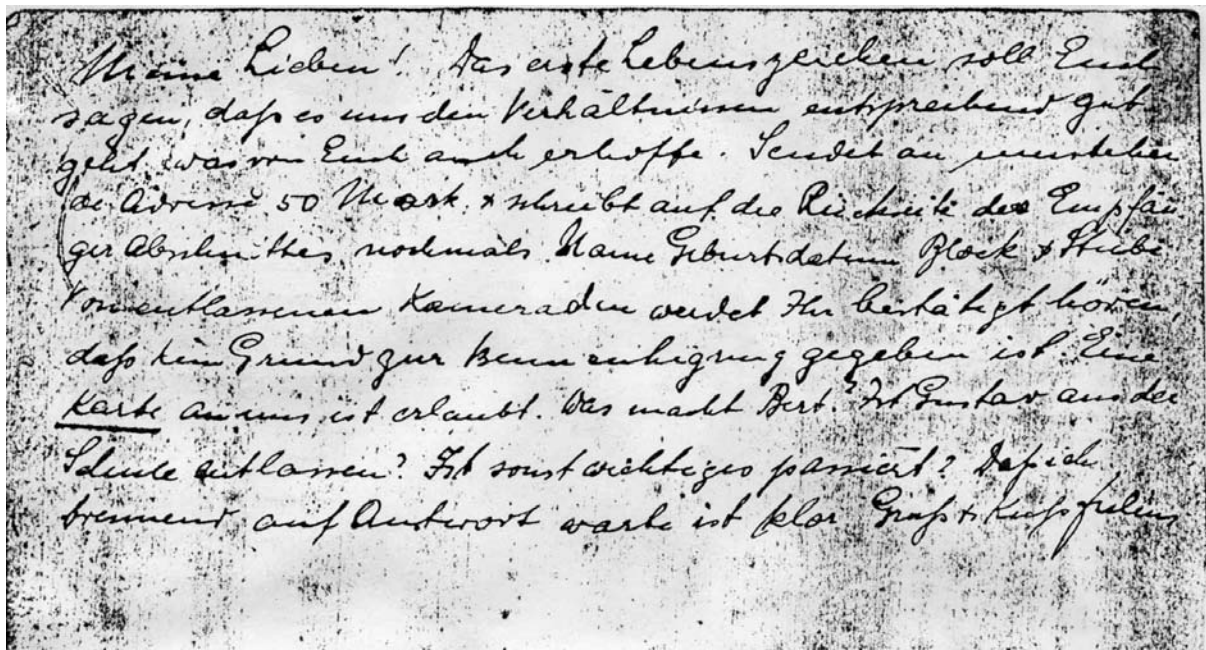 Meine Lieben! Das erste Lebenszeichen soll Euch
sagen, daß es uns den Verhältnissen entsprechend gut
geht was von Euch auch erhoffe. Sendet an umstehen
de Adresse 50 Mark & schreibt auf die Rückseite des Empfän
ger Abschnittes nochmals Name Geburtsdatum Block & Stube
Von entlassenen Kameraden werdet Ihr bestätigt hören,
daß kein Grund zur Beunruhigung gegeben ist. Eine
Karte an uns ist erlaubt. Was macht Bert? Ist Gustav aus der
Schule entlassen? Ist sonst wichtiges passiert? Daß ich
brennend auf Antwort warte ist klar Gruß & Kuß